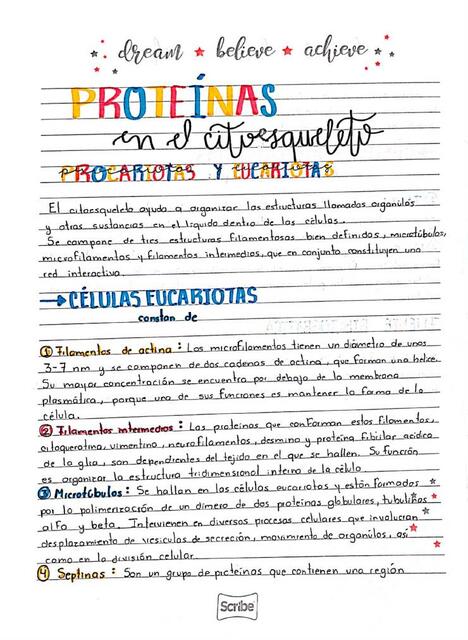 dream ★ believe ★ achieve
PROTEÍNAS
en el citoesqueleto
PROCARIOTAS Y EUCARIOTAS
El citoesqueleto ayuda a organizar las estructuras llamadas organúlos
y otras sustancias en el líquido dentro de las células.
Se compone de tres estructuras filamentosas bien definidas, microtúbulos,
microfilamentos y filamentos intermedios, que en conjunto constituyen una
red interactiva.
→CÉLULAS EUCARIOTAS
constan de
① Filamentos de actina: Los microfilamentos tienen un diámetro de unos
3-7 nm y se componen de dos cadenas de actina, que forman una hélice.
Su mayor concentración se encuentra por debajo de la membrana
plasmática, porque una de sus funciones es mantener la forma de la
célula.
② Filamentos intermedios: Las proteínas que conforman estos filamentos,
citoqueratina, vimentina, neurofilamentos, desmina y proteína fibrilar acídica
de la glía, son dependientes del tejido en el que se hallen. Su función
es organizar la estructura tridimensional interna de la célula.
③ Microtúbulos: Se hallan en las células eucariotas y están formados
por la polimerización de un dímero de dos proteínas globulares, tubulinas
alfa y beta. Intervienen en diversos procesos celulares que involucran
desplazamiento de vesículas de secreción, movimiento de orgánulos, así
como en la división celular.
④ Septinas: Son un grupo de proteínas que contienen una región
Scribe